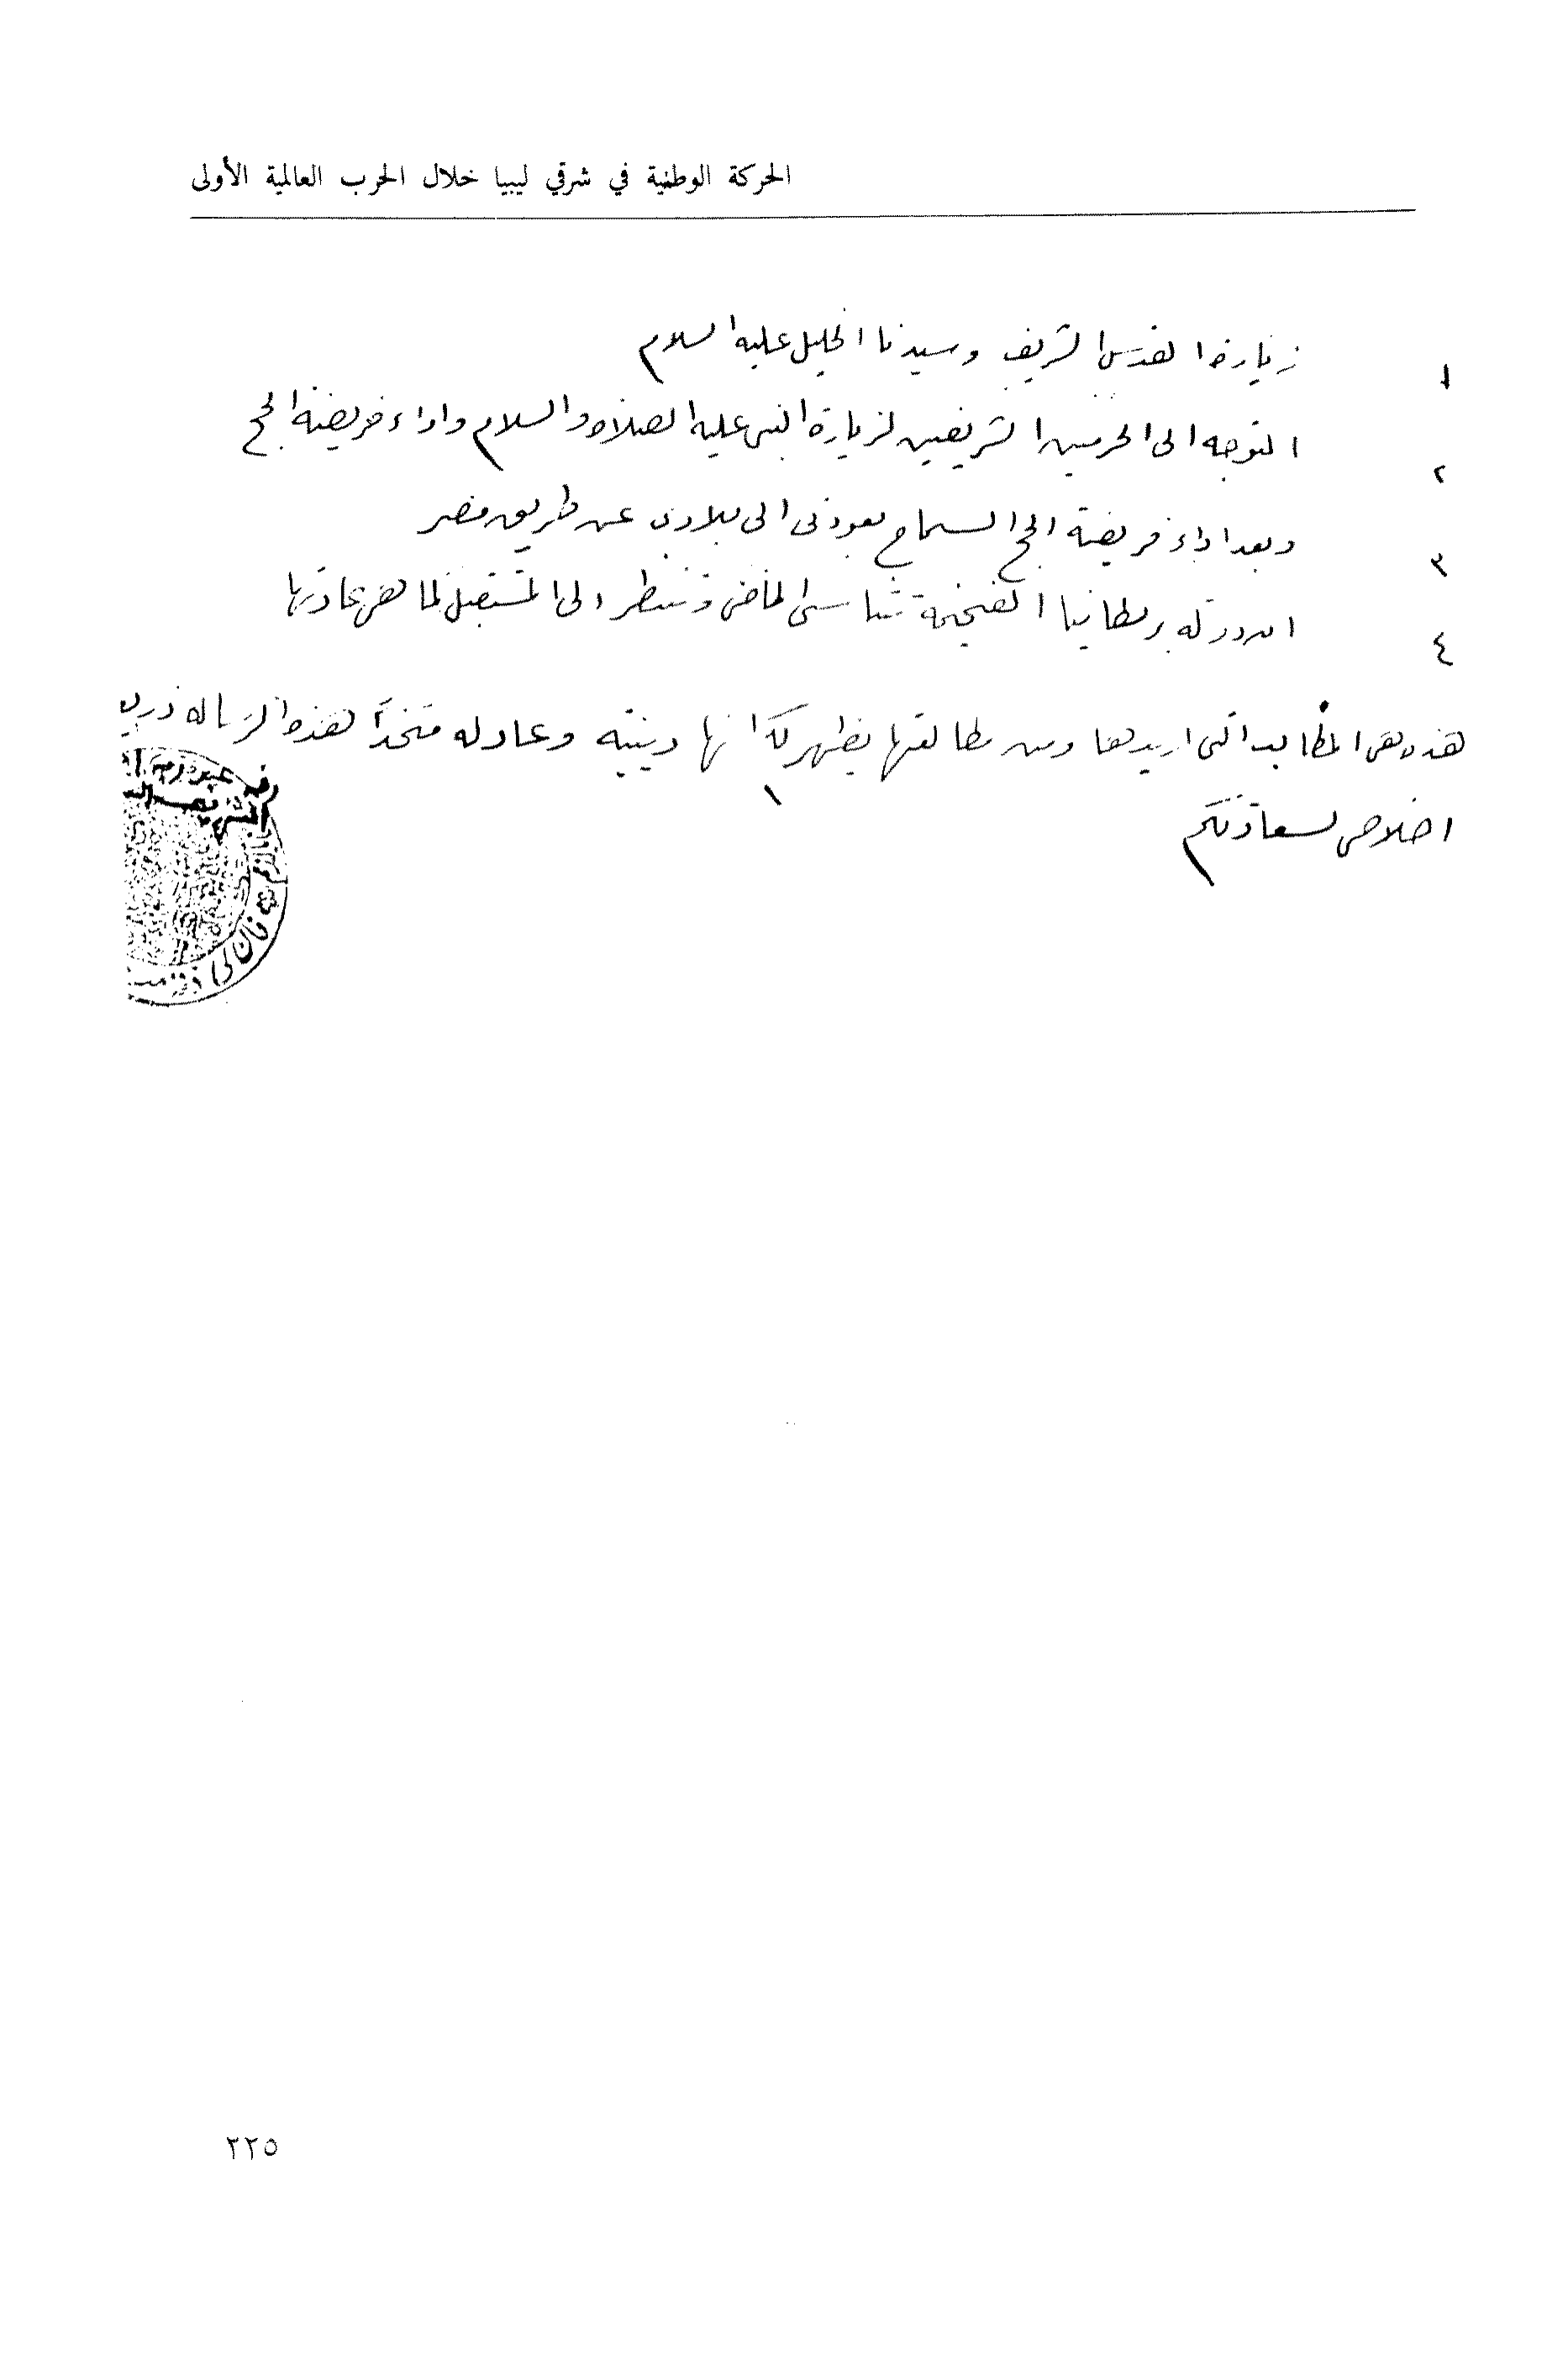 الحركة الوطنية في شرقي ليبيا خلال الحرب العالمية الأولى
١ زيارة القدس الشريف وسيدنا الخليل عليه السلام
٢ التوجه الى الحرمين الشريفين لزيارة النبى عليه الصلاة والسلام واداء فريضة الحج
٣ وبعد اداء فريضة الحج السماح بعودتى الى بلادى عن طريق مصر
٤ ان دولة بريطانيا الفخيمة تتناسى الماضى وتنظر الى المستقبل كما هى عادتها
هذه هى المطالب التى اريدها ومن مطالعتها يظهر لكم انها دينية وعادله متخذاً هذه الرساله
اخلاص لسعادتكم
٢٢٥